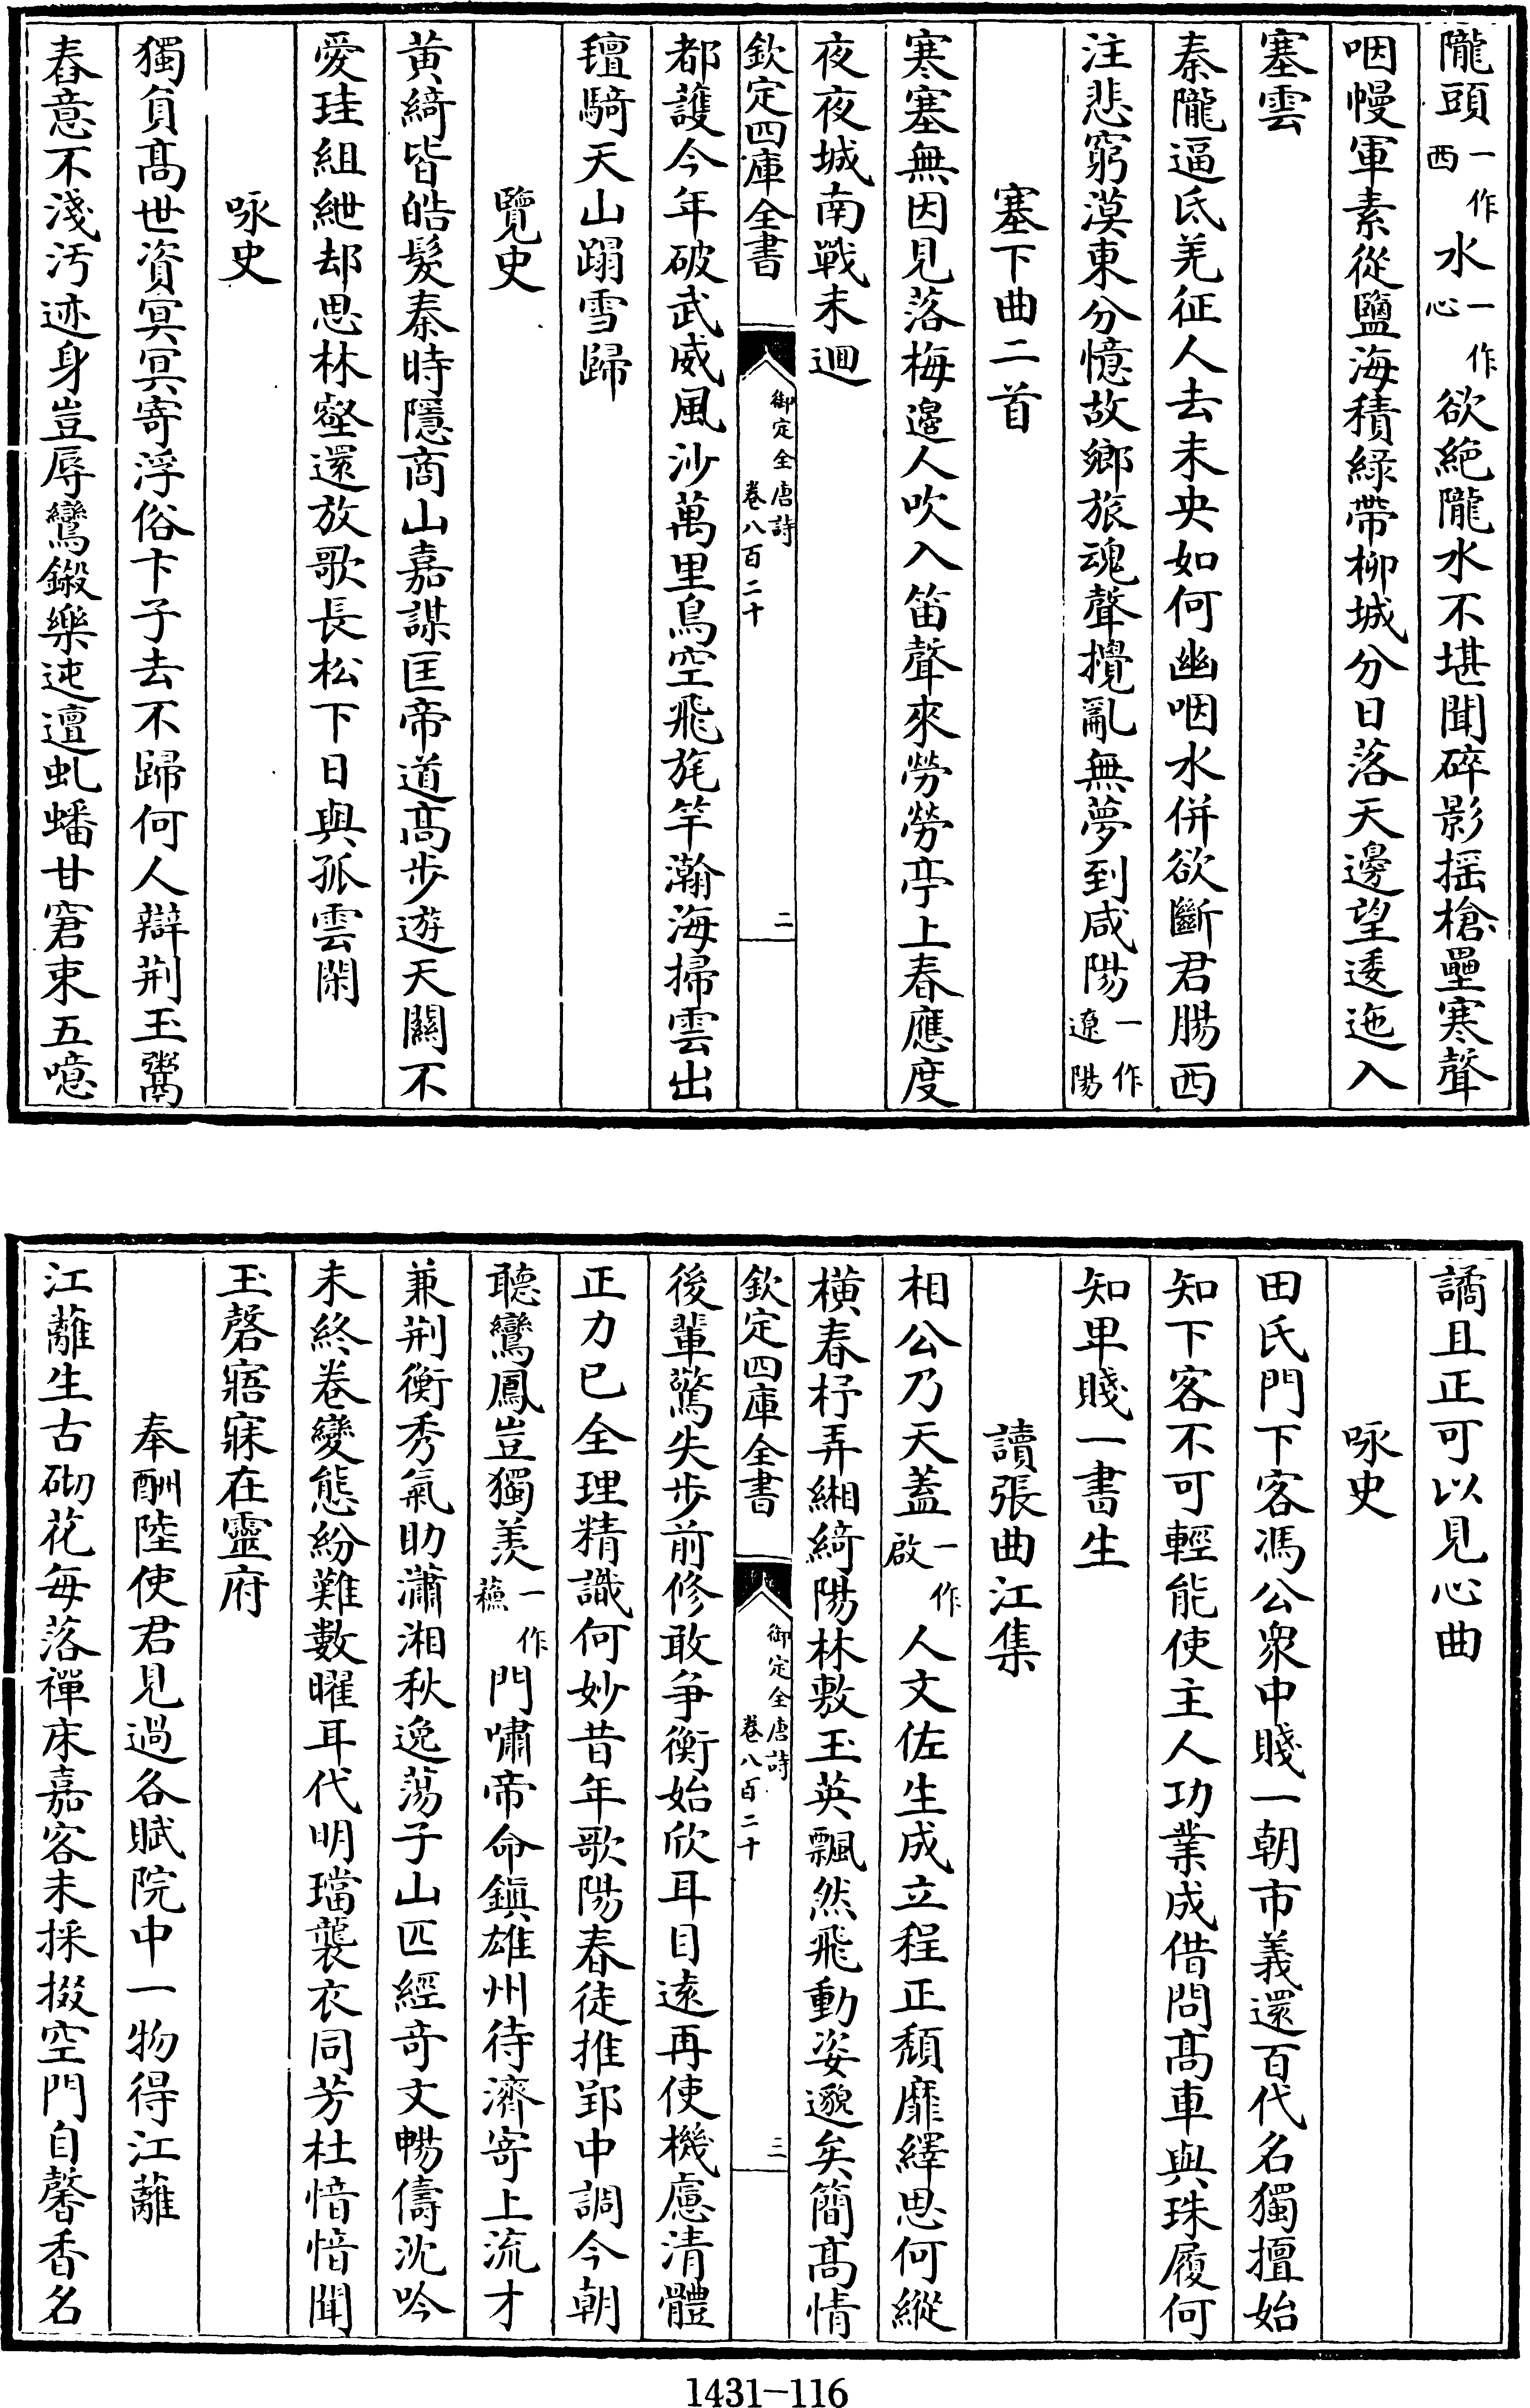 隴頭一作西水一作心欲絶隴水不堪聞碎影摇槍壘寒聲
咽幔軍素從鹽海積綠帶柳城分日落天邊望逶迤入
塞雲
秦隴逼氐羌征人去未央如何幽咽水併欲斷君腸西
注悲窮漠東分憶故鄉旅魂聲攪亂無夢到咸陽一作遼陽
塞下曲二首
寒塞無因見落梅邊人吹入笛聲來勞勞亭上春應度
夜夜城南戰未迴
欽定四庫全書
御定全唐詩
卷八百二十
二
都護今年破武威風沙萬里鳥空飛旄竿瀚海掃雲出
氊騎天山蹋雪歸
覽史
黄綺皆皓髮秦時隱商山嘉謀匡帝道髙步遊天關不
愛珪組絏却思林壑還放歌長松下日與孤雲閑
咏史
獨負髙世資冥冥寄浮俗卞子去不歸何人辯荆玉鬻
春意不淺汚迹身豈辱鸞鎩樂迍邅虬蟠甘窘束五噫
譎且正可以見心曲
咏史
田氏門下客馮公衆中賤一朝市義還百代名獨擅始
知下客不可輕能使主人功業成借問髙車與珠履何
知卑賤一書生
讀張曲江集
相公乃天蓋一作啟人文佐生成立程正頹靡繹思何縱
横春杼弄緗綺陽林敷玉英飄然飛動姿邈矣簡髙情
欽定四庫全書
御定全唐詩
卷八百二十
三
後輩驚失步前修敢爭衡始欣耳目遠再使機慮清體
正力已全理精識何妙昔年歌陽春徒推郢中調今朝
聽鸞鳳豈獨羨一作蘓門嘯帝命鎮雄州待濟寄上流才
兼荆衡秀氣助瀟湘秋逸蕩子山匹經竒文暢儔沈吟
未終卷變態紛難數曜耳代明璫襲衣同芳杜愔愔聞
玉磬寤寐在靈府
奉酬陸使君見過各賦院中一物得江蘺
江蘺生古砌花每落禪床嘉客未採掇空門自馨香名
1431-116